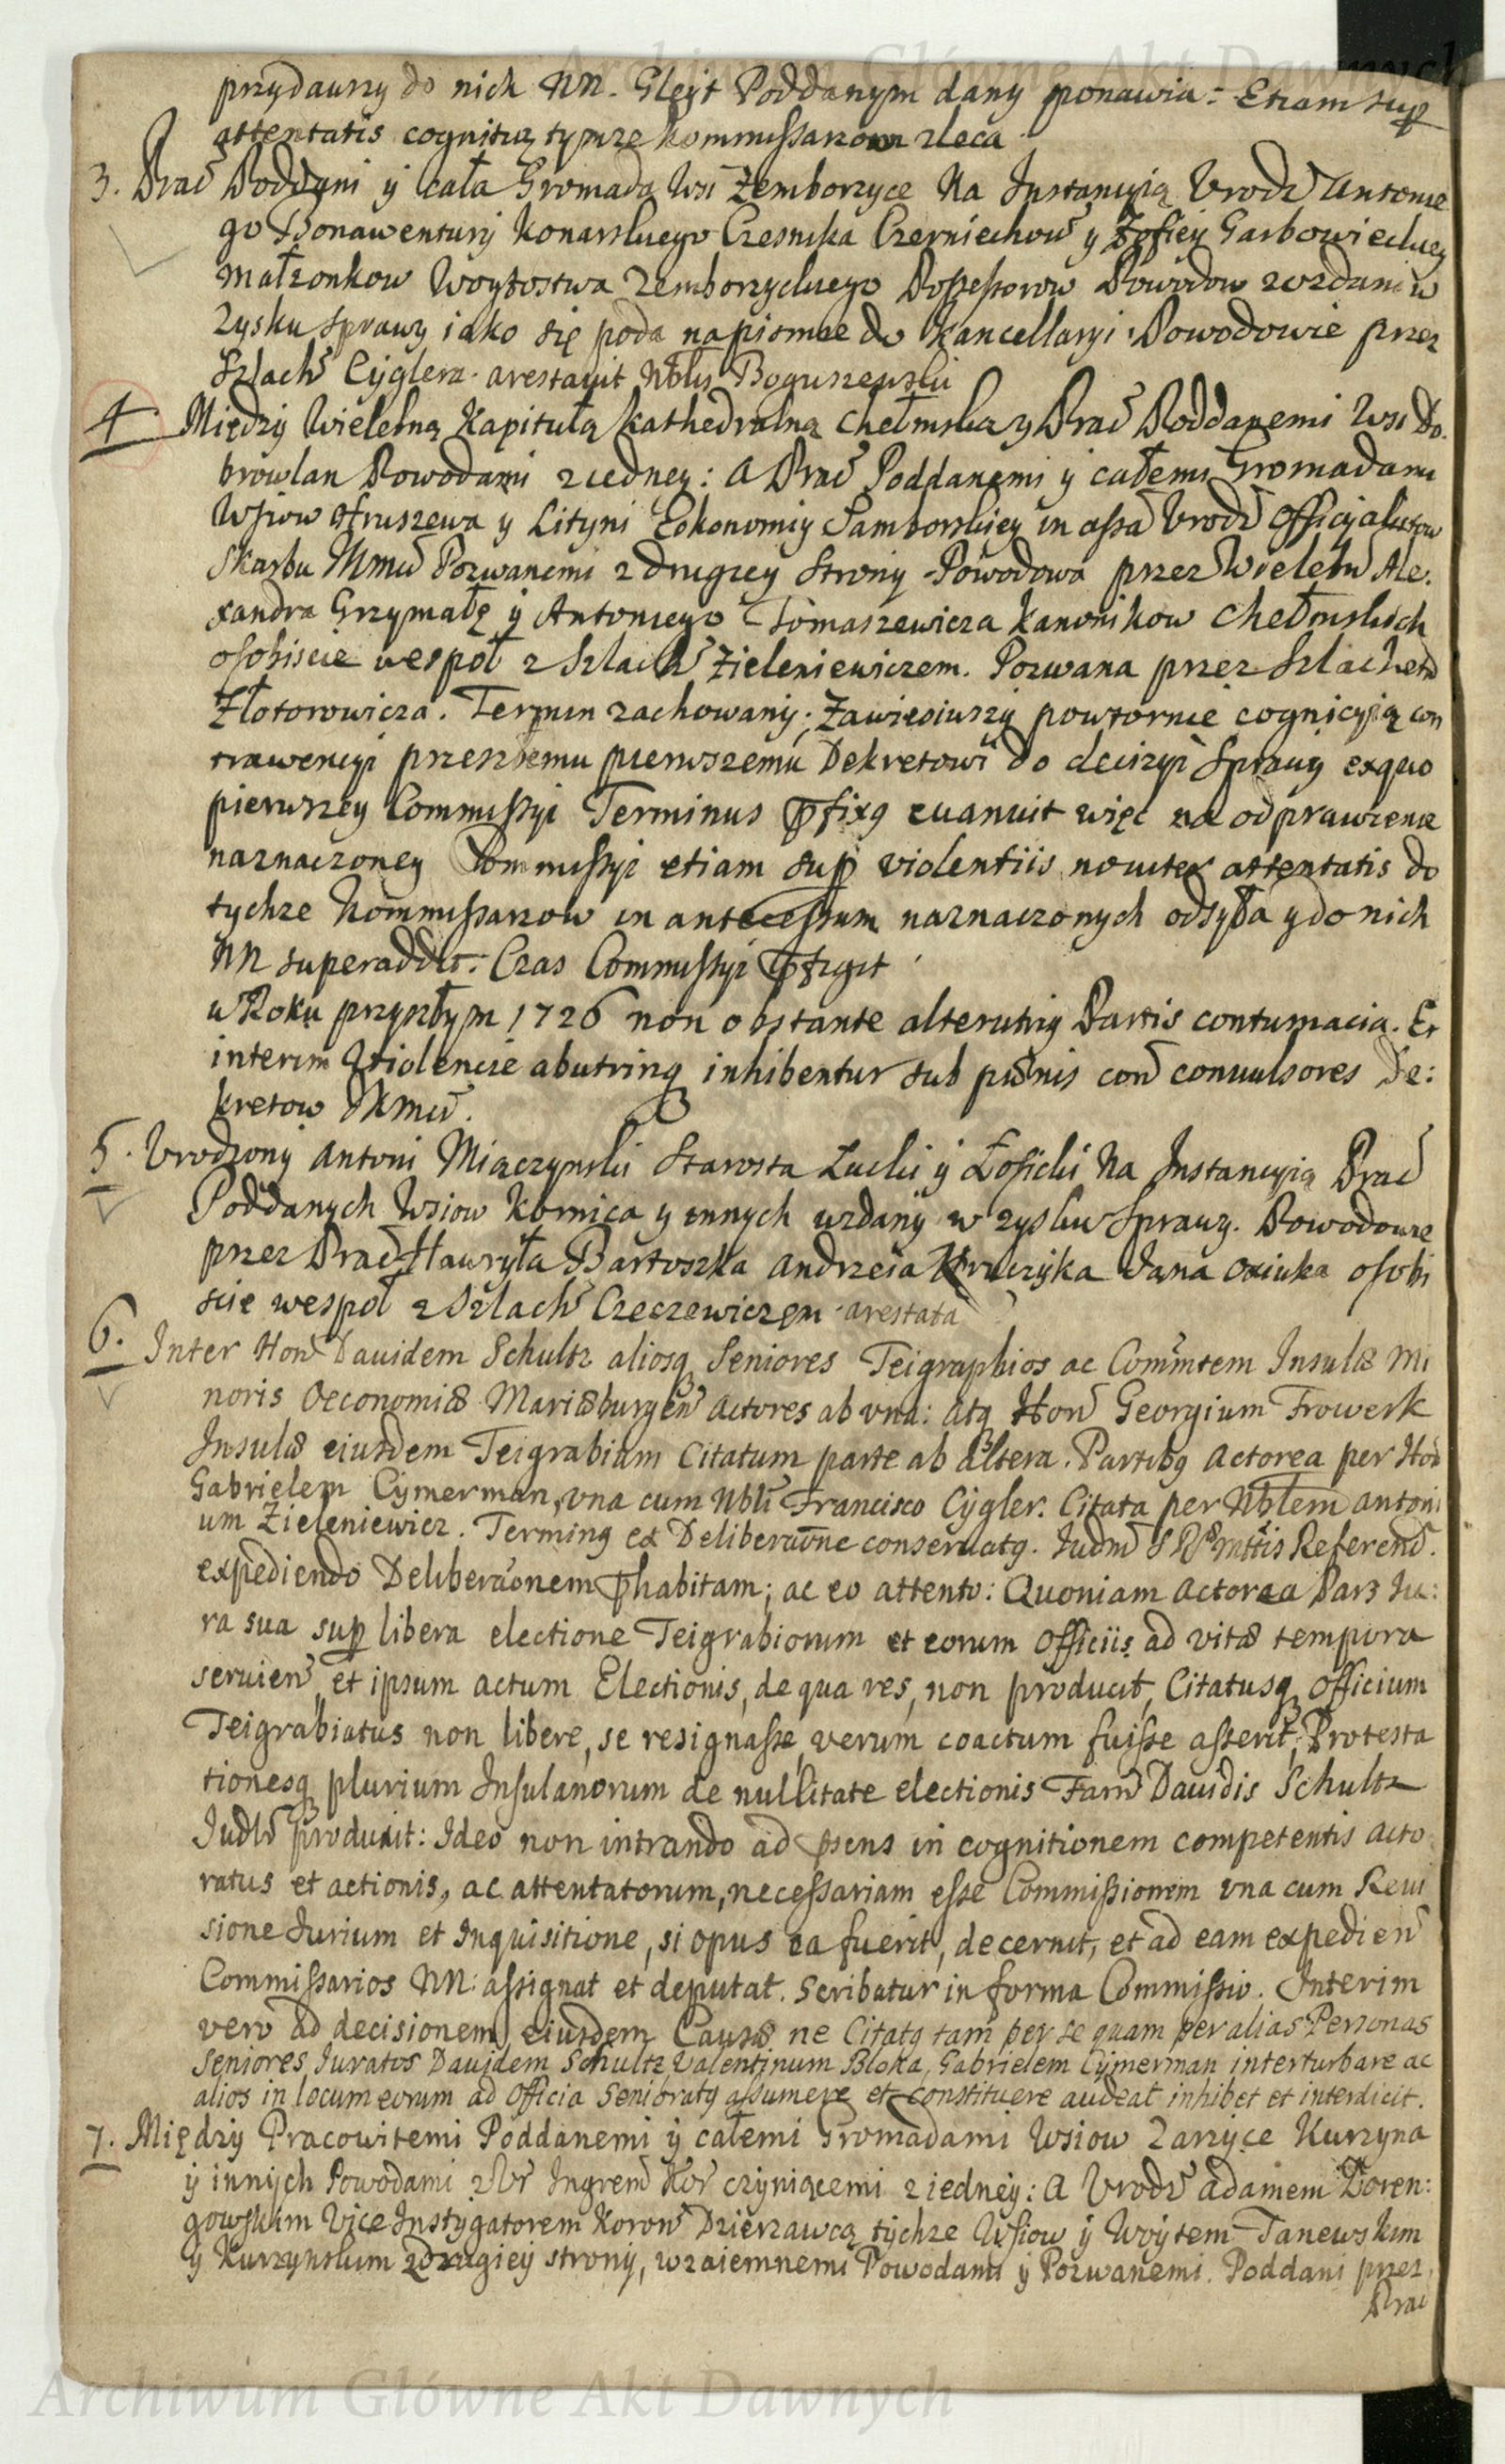 przydawszy do nich NN. Gleyt Poddanym dany ponawia: Etiam sup
attentatis cognitią tymze kommissarzom zleca
3. Prac Poddani y cała Gromada Wsi Zemborzyce Na Instancyią Vrodz Antonie
go Bonawentury Konarskiego Czesnika Czerniechow y Zofiey Garbowieckiey
małzonkow Woytostwa Zemborzyckiego Possessorow Powodow wzdani w
Zysku sprawy iako się poda napismie do Kancellaryi. Powodowie przez
Szlach Cyglera. arestavit Nblis Boguszewski
4. Między Wielebną Kapitułą Kathedralną Chełmską y Prac Poddanemi Wsi Do
browlan Powodami z iedney: A Prac Poddanemi y całemi Gromadami
Wsiow Hruszewa y Lityni Eokonomiy Samborskiey in assa Vrodz Officyalistow
Skarbu Pozwanemi z drugiey Strony Powodowa przez Wielebn Ale.
xandra Grzymałę y Antoniego Tomaszewicza Kanonikow Chełmskich
osobiscie wespoł z Szlach Zieleniewiczem. Pozwana przez Szlachetn
Złotorowicza. Termin zachowany. Zawiesiwszy powtornie cognicyją con
trawencyi przeszłemu pierwszemu Dekretowi do decizyi Sprawy exquo
pierwszey Commissyi Terminus pfixg evanuit więc na odprawienie
naznaczoney Commissyi etiam sup violentiis noviter attentatis do
tychze Kommissarzow in antecessum naznaczonych odsyła y do nich
NN superaddit. Czas Commissyi pfigit
w Roku przyszłym 1726 non obstante alterutrig Partis contumacia. Et
interim Violencie abutring inhibentur sub pœnis con convulsores De:
kretow JKMci.
5. Vrodzony Antoni Miączynski Starosta Łucki y Łosicki Na Instancyią Prac
Poddanych Wsiow Kornica y innych wzdany w zysku Sprawy. Powodowie
przez Prac Hawryła Bartoszka Andrzeia Kruczyka Jana Oxiuka osobi
scie wespoł z Szlach Czeczewiczem. arestata
6. Inter Hon Davidem Schultz aliosq Seniores Teigraphios ac Commtem Insulæ Mi
noris Oeconomiæ Mariæburgen Actores ab vna: atq Hon Georgium Frowerk
Insulæ eiusdem Teigrabium Citatum parte ab altera. Partibg Actorea per Hon
Gabrielem Cymerman, vna cum Nbli Francisco Cygler. Citata per Nblem Antoni
um Zieleniewicz. Terming ex Deliberaōne conservatg. Judm S R Mttis Referend.
expediendo Deliberaōnem phabitam; ac eo attento: Quoniam Actorea Pars Iu:
ra sua sup libera electione Teigrabiorum et eorum Officiis ad vitæ tempora
servien et ipsum actum Electionis, de qua res, non producit, Citatusq Officium
Teigrabiatus non libere, se resignasse, verum coactum fuisse asserit, Protesta
tionesq plurium Insulanorum de nullitate electionis Fam Davidis Schultz
Judlr produxit: Ideo non intrando ad psens in cognitionem competentis Acto
ratus et actionis, ac attentatorum, necessariam esse Commissionem vna cum Revi
sione Iurium et Inquisitione, si opus ea fuerit, decernit, et ad eam expedien
Commissarios NN. assignat et deputat. Scribatur in forma Commissio. Interim
vero ad decisionem eiusdem Causæ ne Citatg tam per se quam per alias Personas
Seniores Iuratos Davidem Schultz, Valentinum Bloka, Gabrielem Cymerman interturbare ac
alios in locum eorum ad Officia Senioratg assumere et constituere audeat inhibet et interdicit.
7. Między Pracowitemi Poddanemi y całemi Gromadami Wsiow Zarzyce Kurzyna
y innych Powodami z Vr Ingrem Kor czyniącemi z iedney: A Vrodz Adamem Doren:
gowskim Vice Instygatorem Koron Dzierzawcą tychze Wsiow y Woytem Tanewskim
y Kurzynskim z drugiey strony, wzaiemnemi Powodami y Pozwanemi. Poddani przez
Prac
Archiwum Główne Akt Dawnych